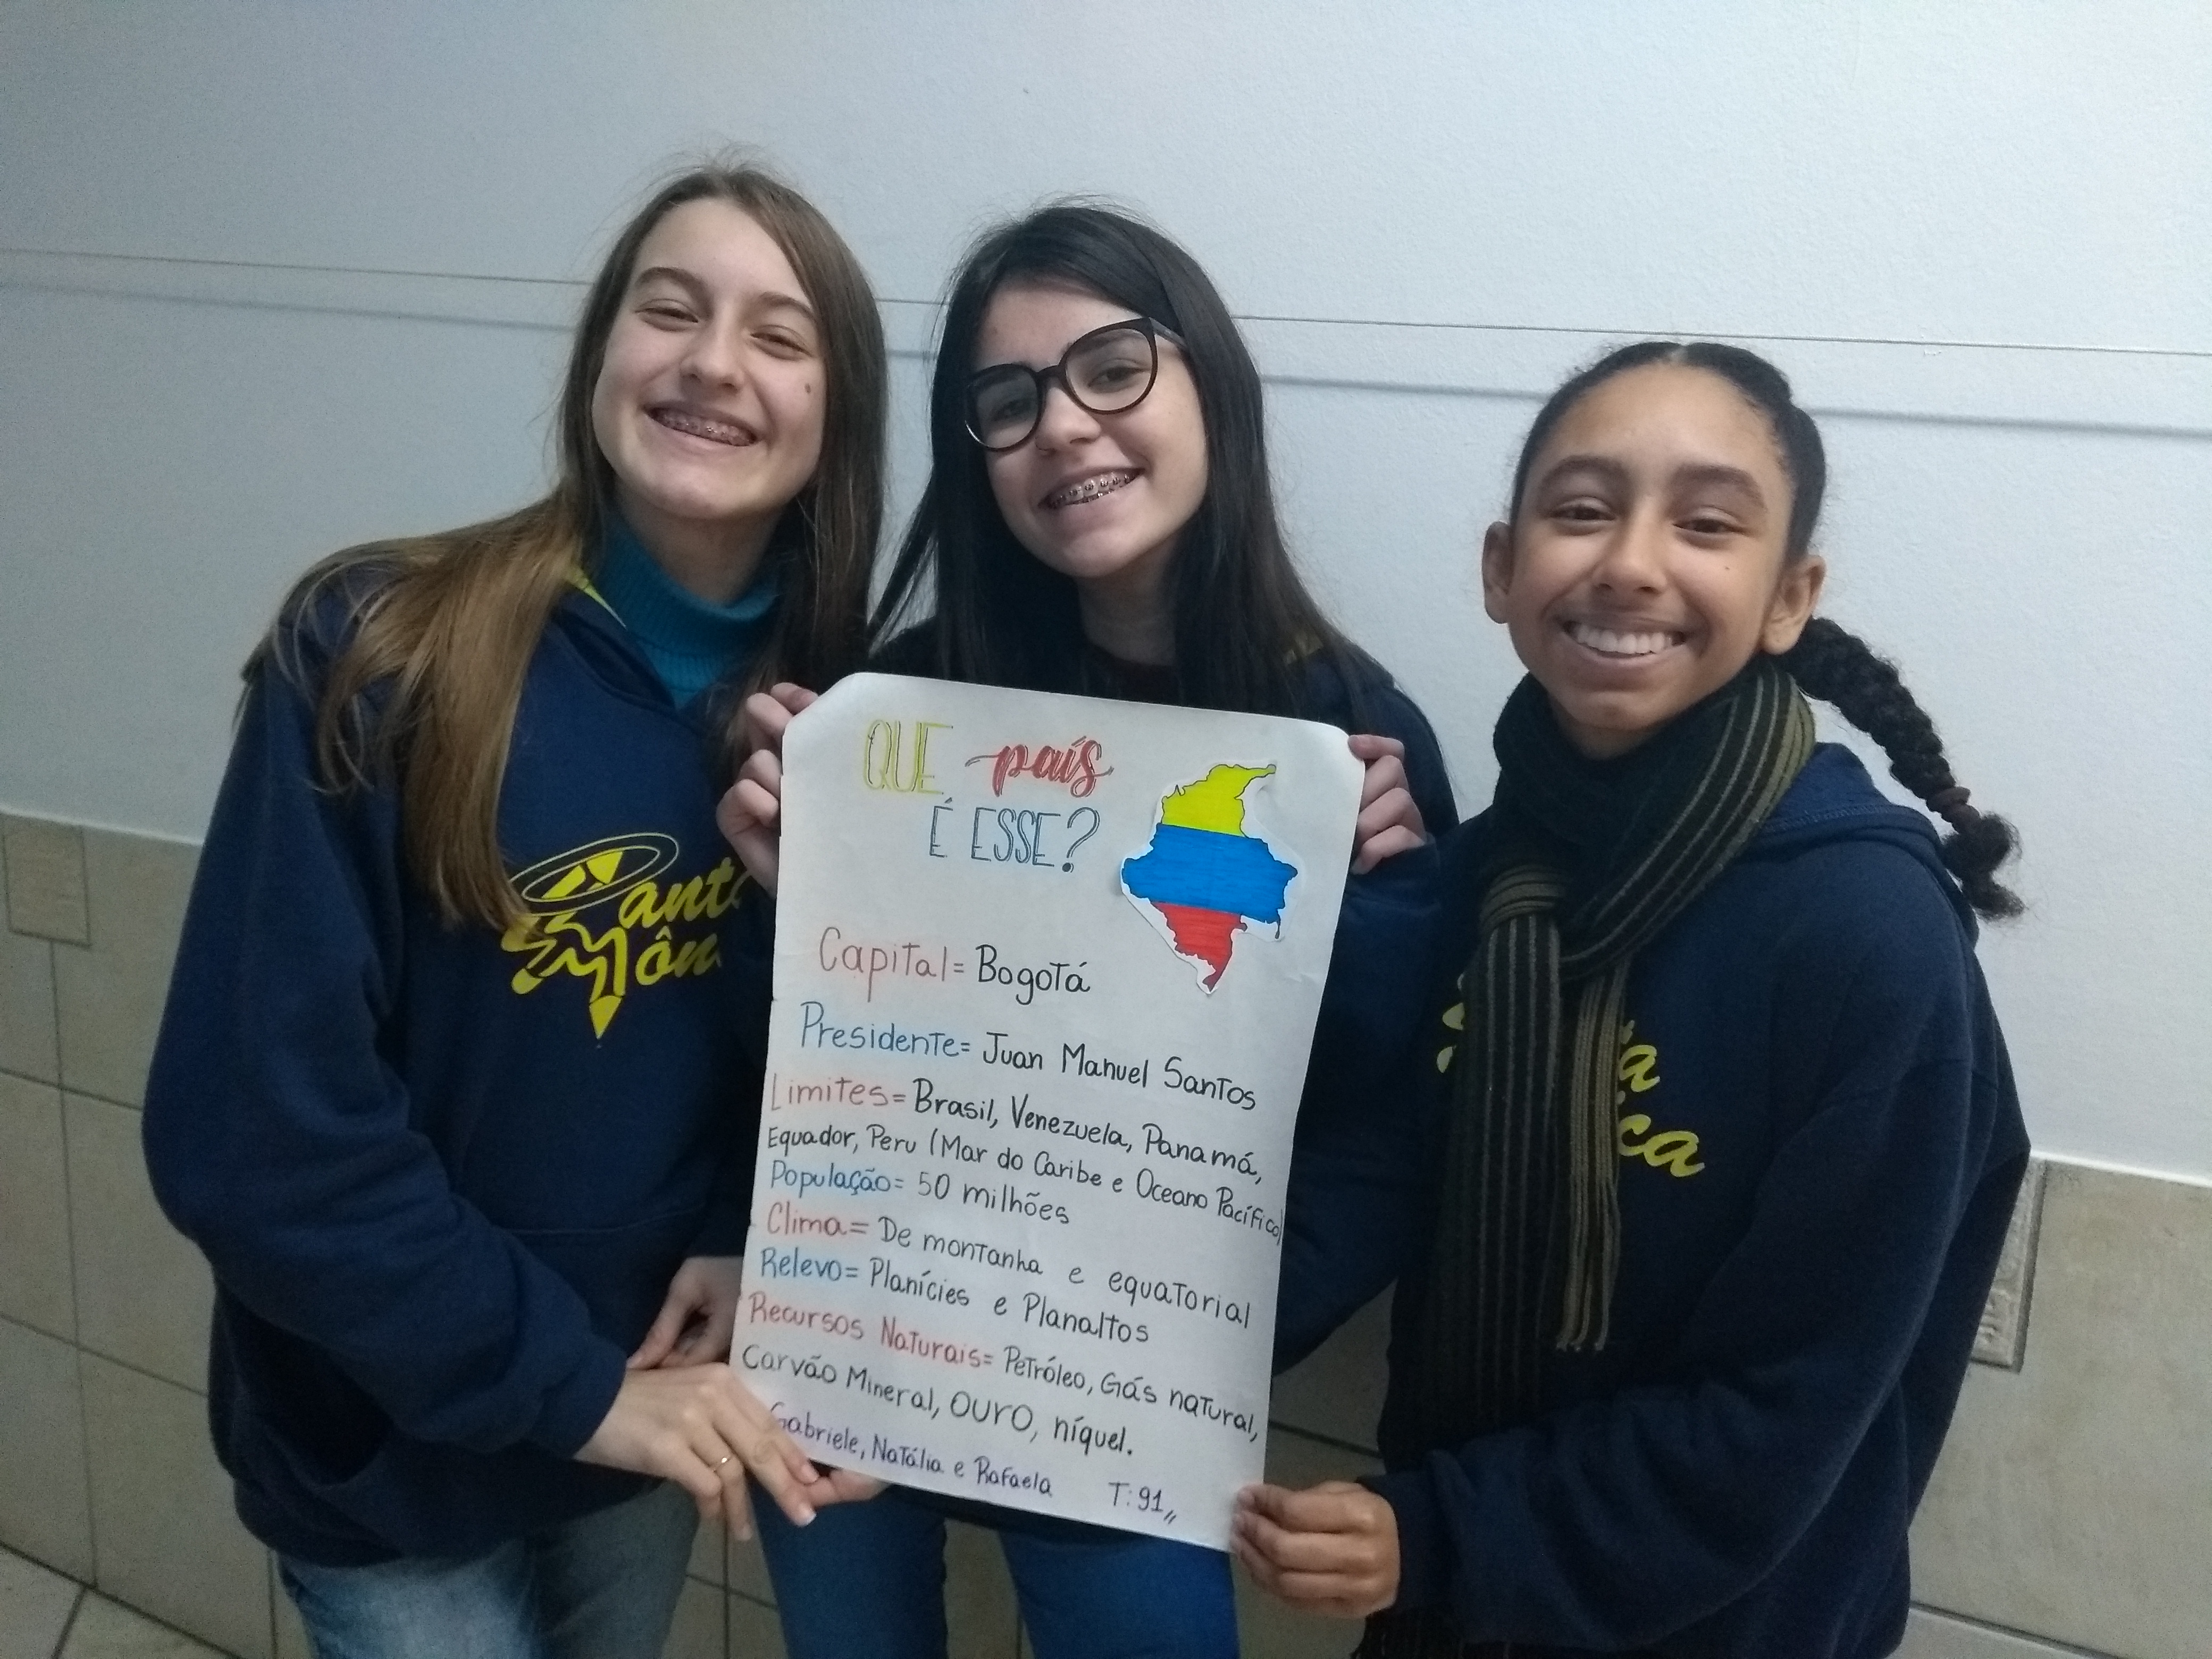 QUE país
É ESSE?
Capital= Bogotá
Presidente= Juan Manuel Santos
Limites= Brasil, Venezuela, Panamá,
Equador, Peru (Mar do Caribe e Oceano Pacífico)
População= 50 milhões
Clima= De montanha e equatorial
Relevo= Planícies e Planaltos
Recursos Naturais= Petróleo, Gás natural,
Carvão Mineral, OURO, níquel.
Gabriele, Natália e Rafaela T:91,,